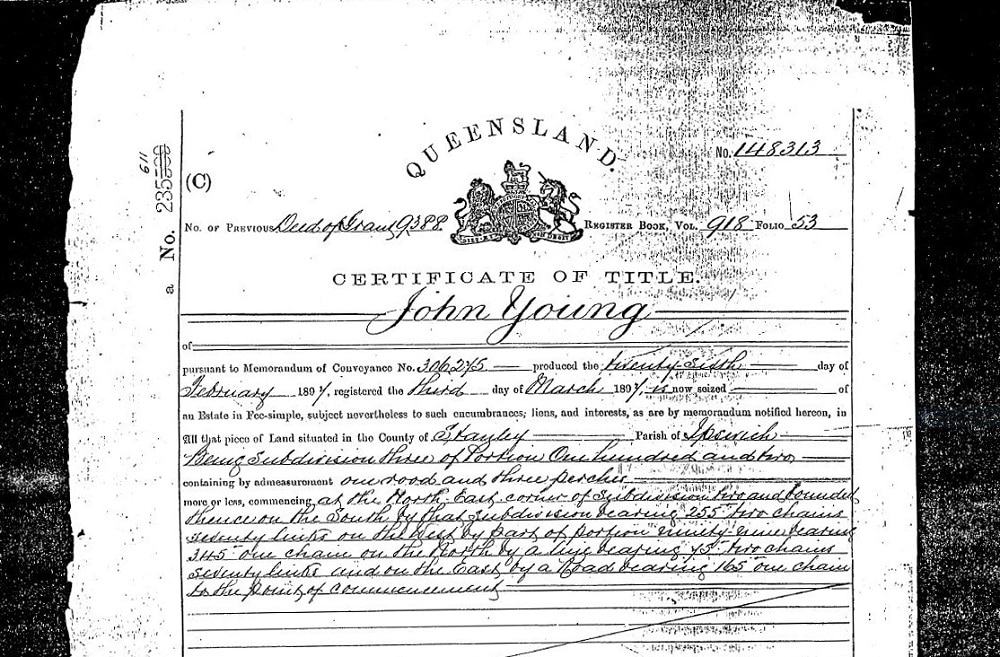 QUEENSLAND.
No. 148313
(C)
No. of Previous Deed of Grant 9388 Register Book, Vol. 918 Folio 53
a No. 235
611
CERTIFICATE OF TITLE.
John Young
of
pursuant to Memorandum of Conveyance No. 306275 produced the twenty sixth day of
February 1897, registered the third day of March 1897, is now seized of
an Estate in Fee-simple, subject nevertheless to such encumbrances, liens, and interests, as are by memorandum notified hereon, in
All that piece of Land situated in the County of Stanley Parish of Ipswich
Being Subdivision three of Portion One hundred and two
containing by admeasurement one rood and three perches
more or less, commencing at the North East corner of Subdivision two and bounded
thence on the South by that Subdivision bearing 255° two chains
seventy links on the West by part of portion ninety nine bearing
345° one chain on the North by a line bearing 75° two chains
seventy links and on the East by a Road bearing 165° one chain
to the point of commencement